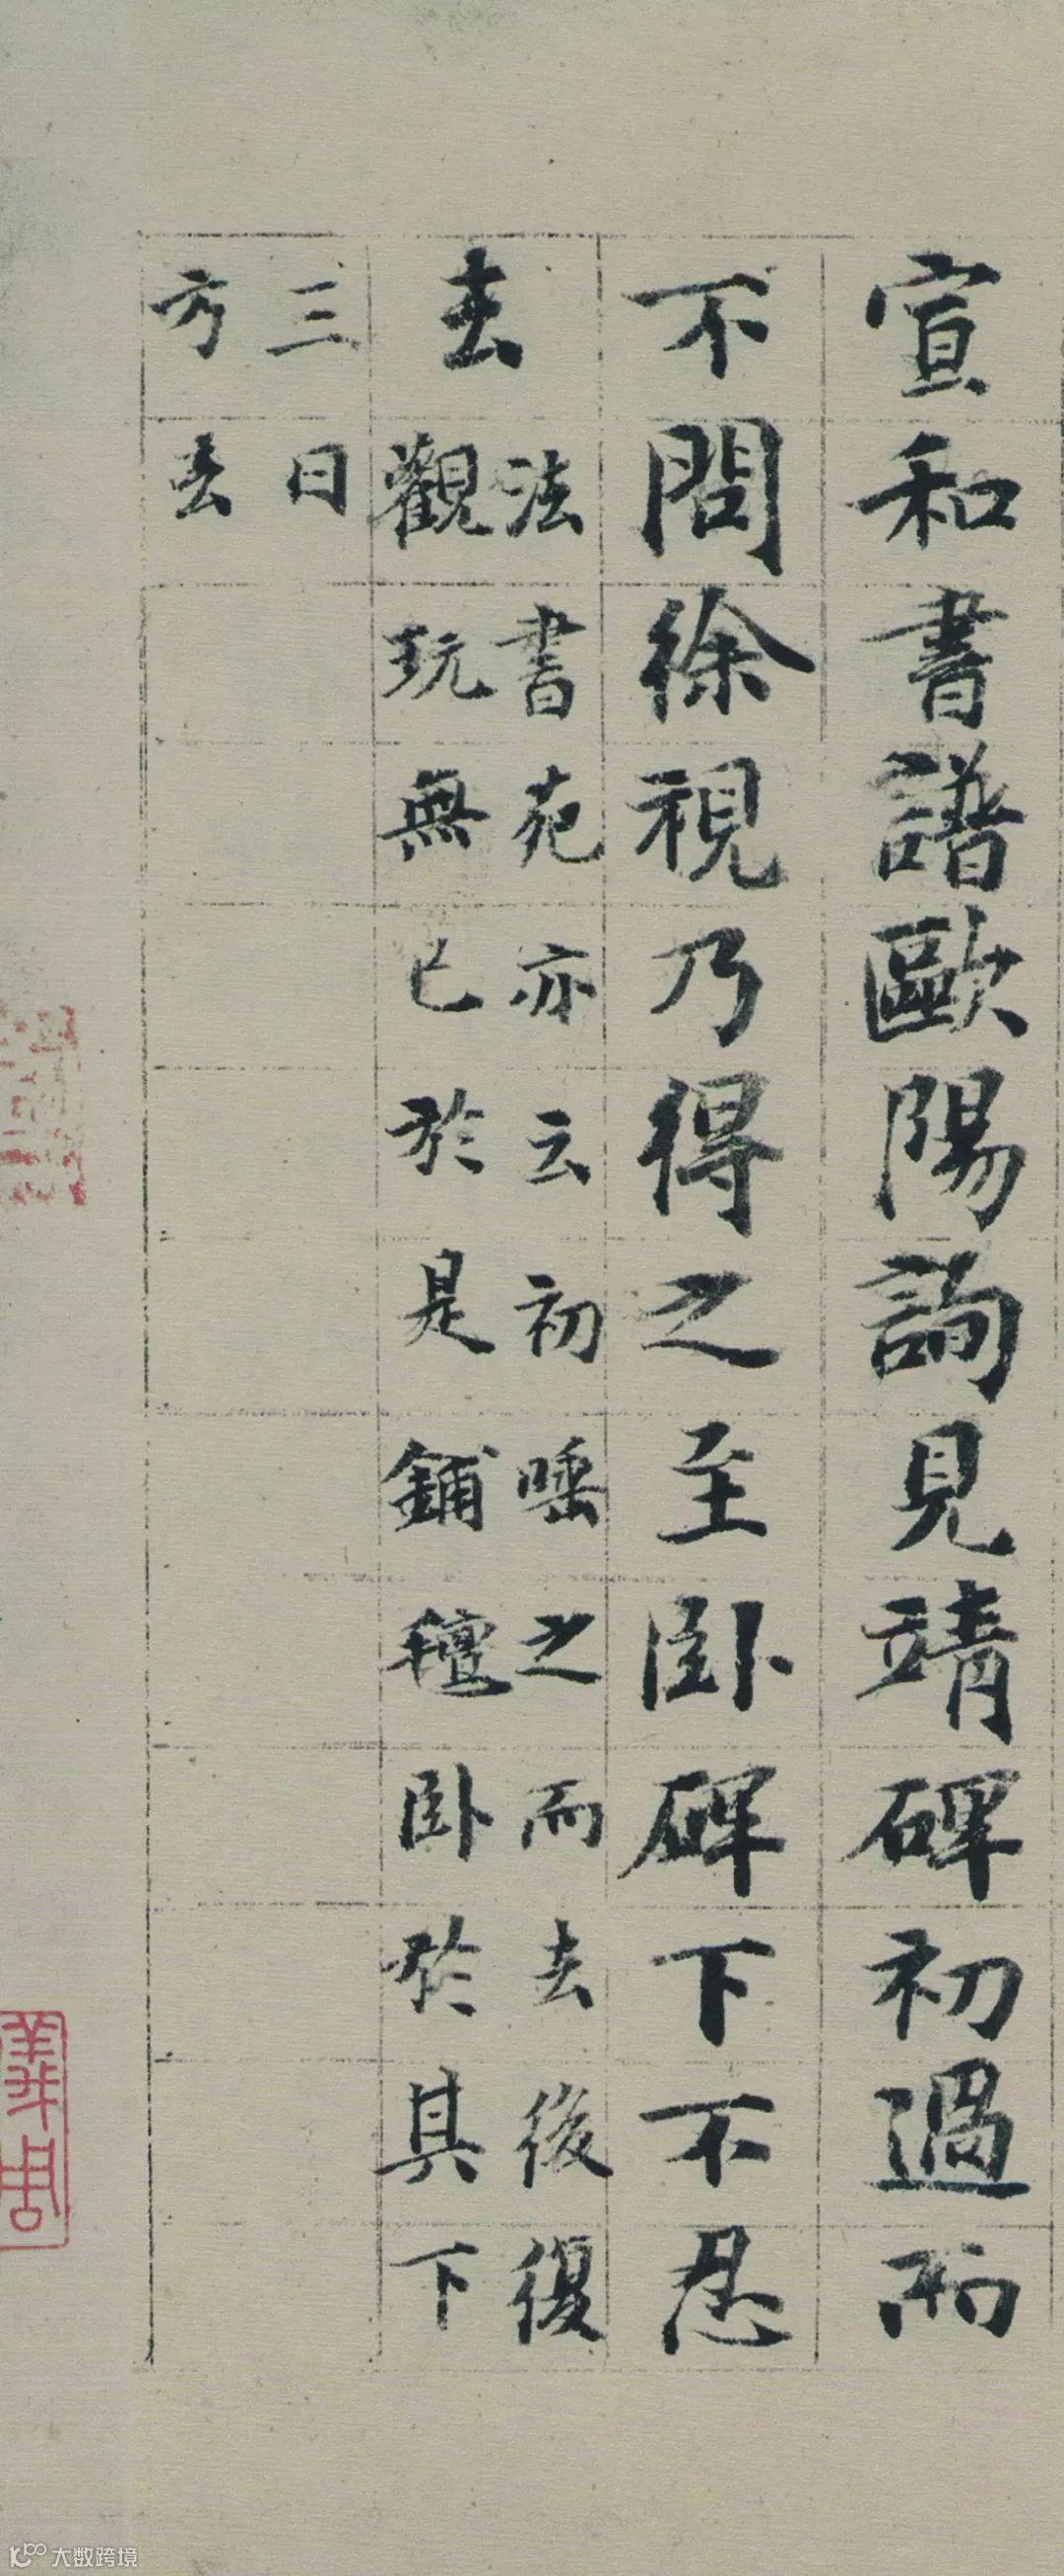 宣和書譜歐陽詢見靖碑初過而
不問徐視乃得之至卧碑下不忍
去
法書苑亦云初唾之而去後復
觀玩無已於是鋪氈卧於其下
三日
方去
大数跨境